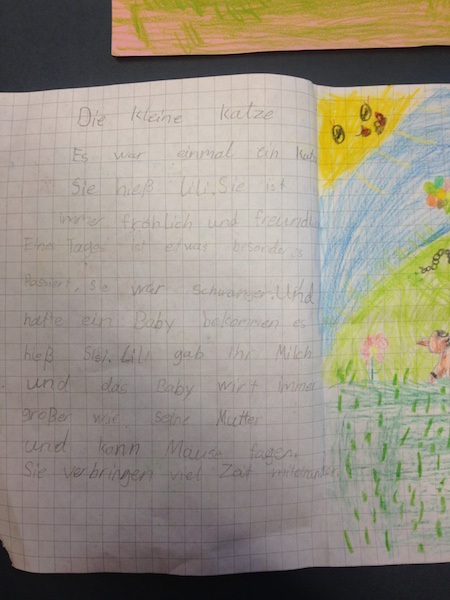 Die kleine Katze
Es war einmal ein Katz
Sie hieß Lili. Sie ist
immer fröhlich und freundl
Eines Tages ist etwas besonderes
Passiert, sie war schwanger. Und
hatte ein Baby bekommen es
hieß Sisi. Lili gab Ihr Milch
und das Baby wirt immer
größer wie seine Mutter
und kann Mäuse fagen.
Sie verbringen viel Zeit miteinander